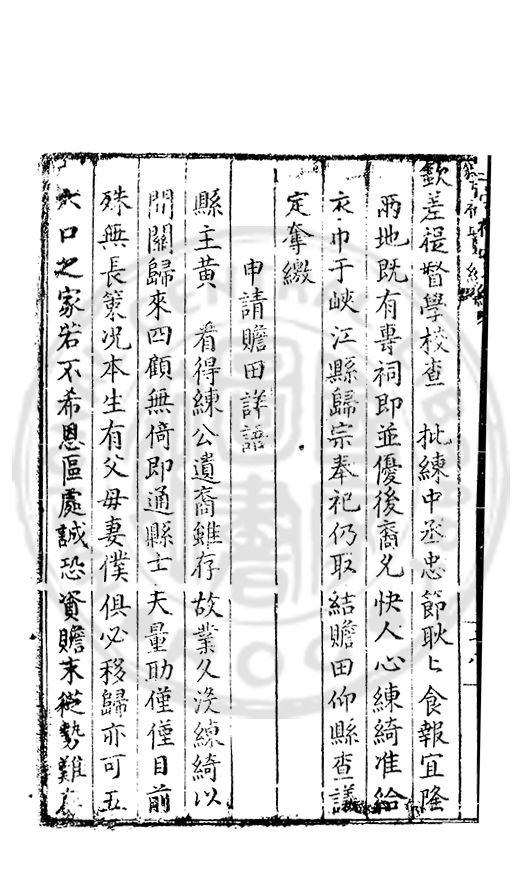 欽差提督學校查　批練中丞忠節耿匕食報宜隆
兩地既有專祠即並優後裔允快人心練綺准給
衣巾于峽江縣歸宗奉祀仍取結贍田仰縣查議
定奪繳
申請贍田詳語
縣主黃　看得練公遺裔雖存故業久没練綺以
間關歸來四顧無倚即通縣士夫量助僅僅目前
殊無長策况本生有父母妻僕俱必移歸亦可五
六口之家若不希恩區處誠恐資贍末從勢難